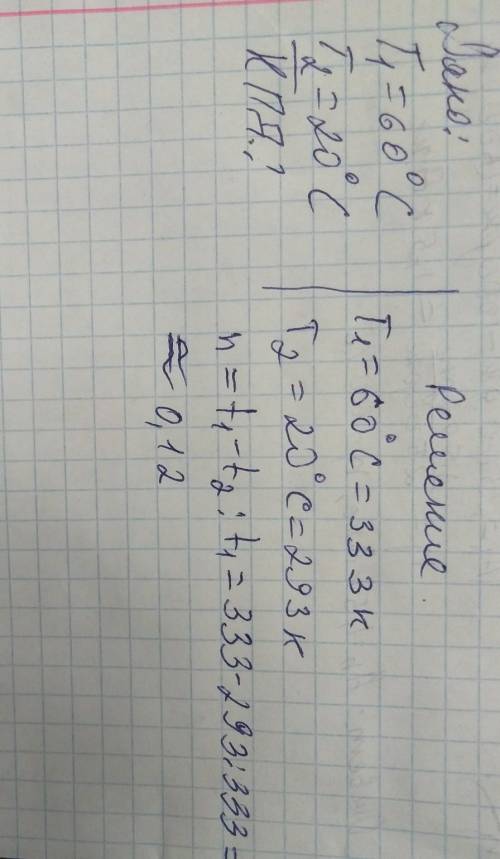 Дано:
T₁ = 60°C
T₂ = 20°C
КПД.?
Решение.
T₁ = 60°C = 333 к
T₂ = 20°C = 293 к
n = t₁ - t₂ : t₁ = 333 - 293 : 333 =
≈ 0,12